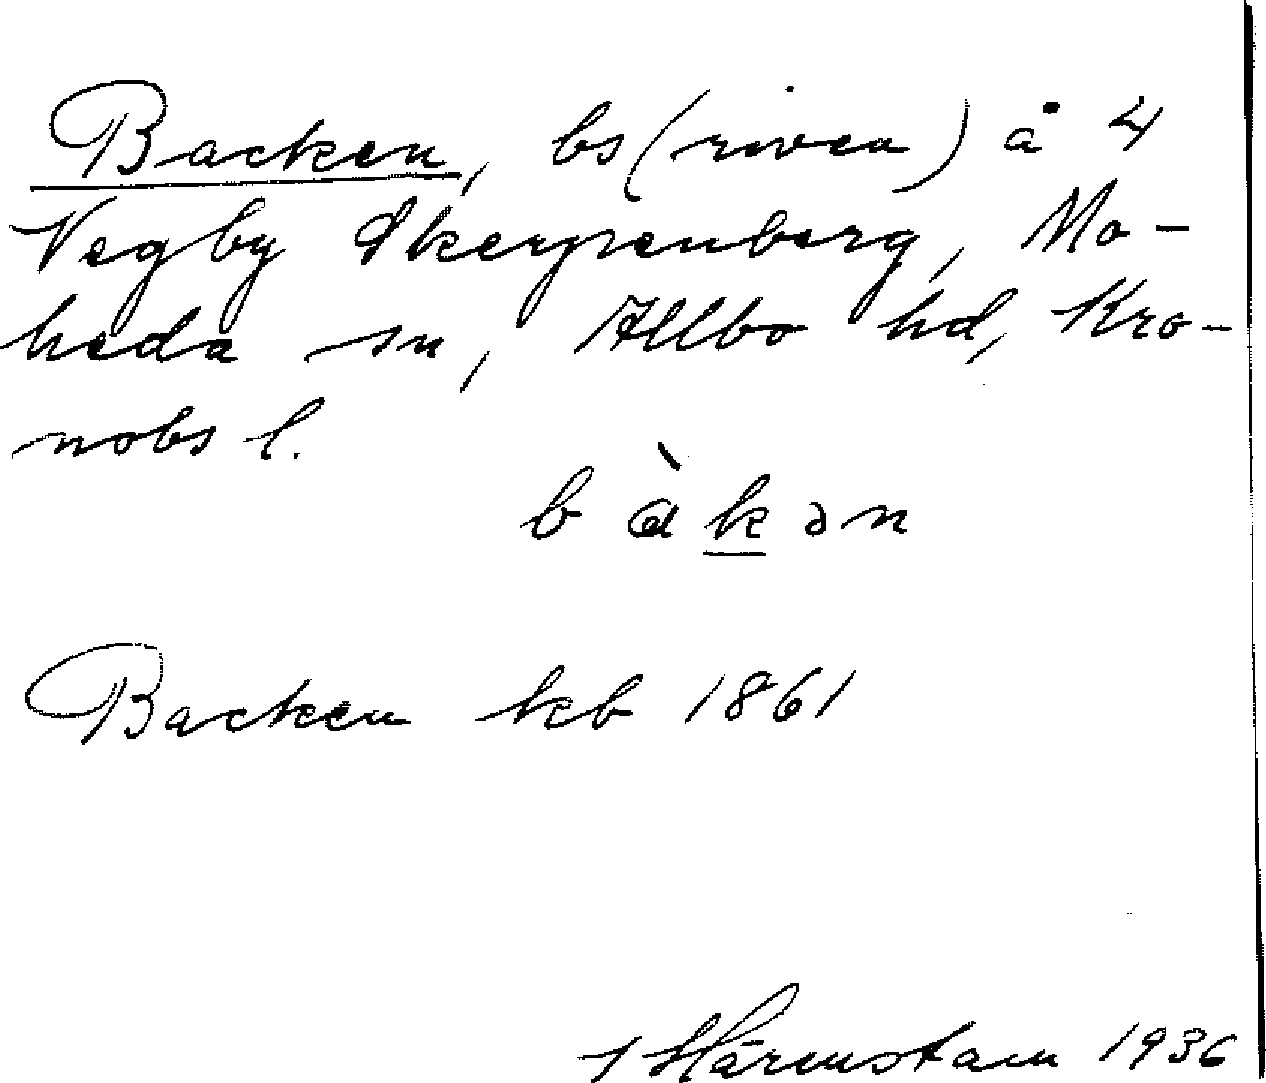 Backen, bs (riven) å 4
Vegby Skerpenberg, Mo-
heda sn, Allbo hd, Kro-
nobs l.
b à k ə n
Backen kb 1861
Härenstam 1936